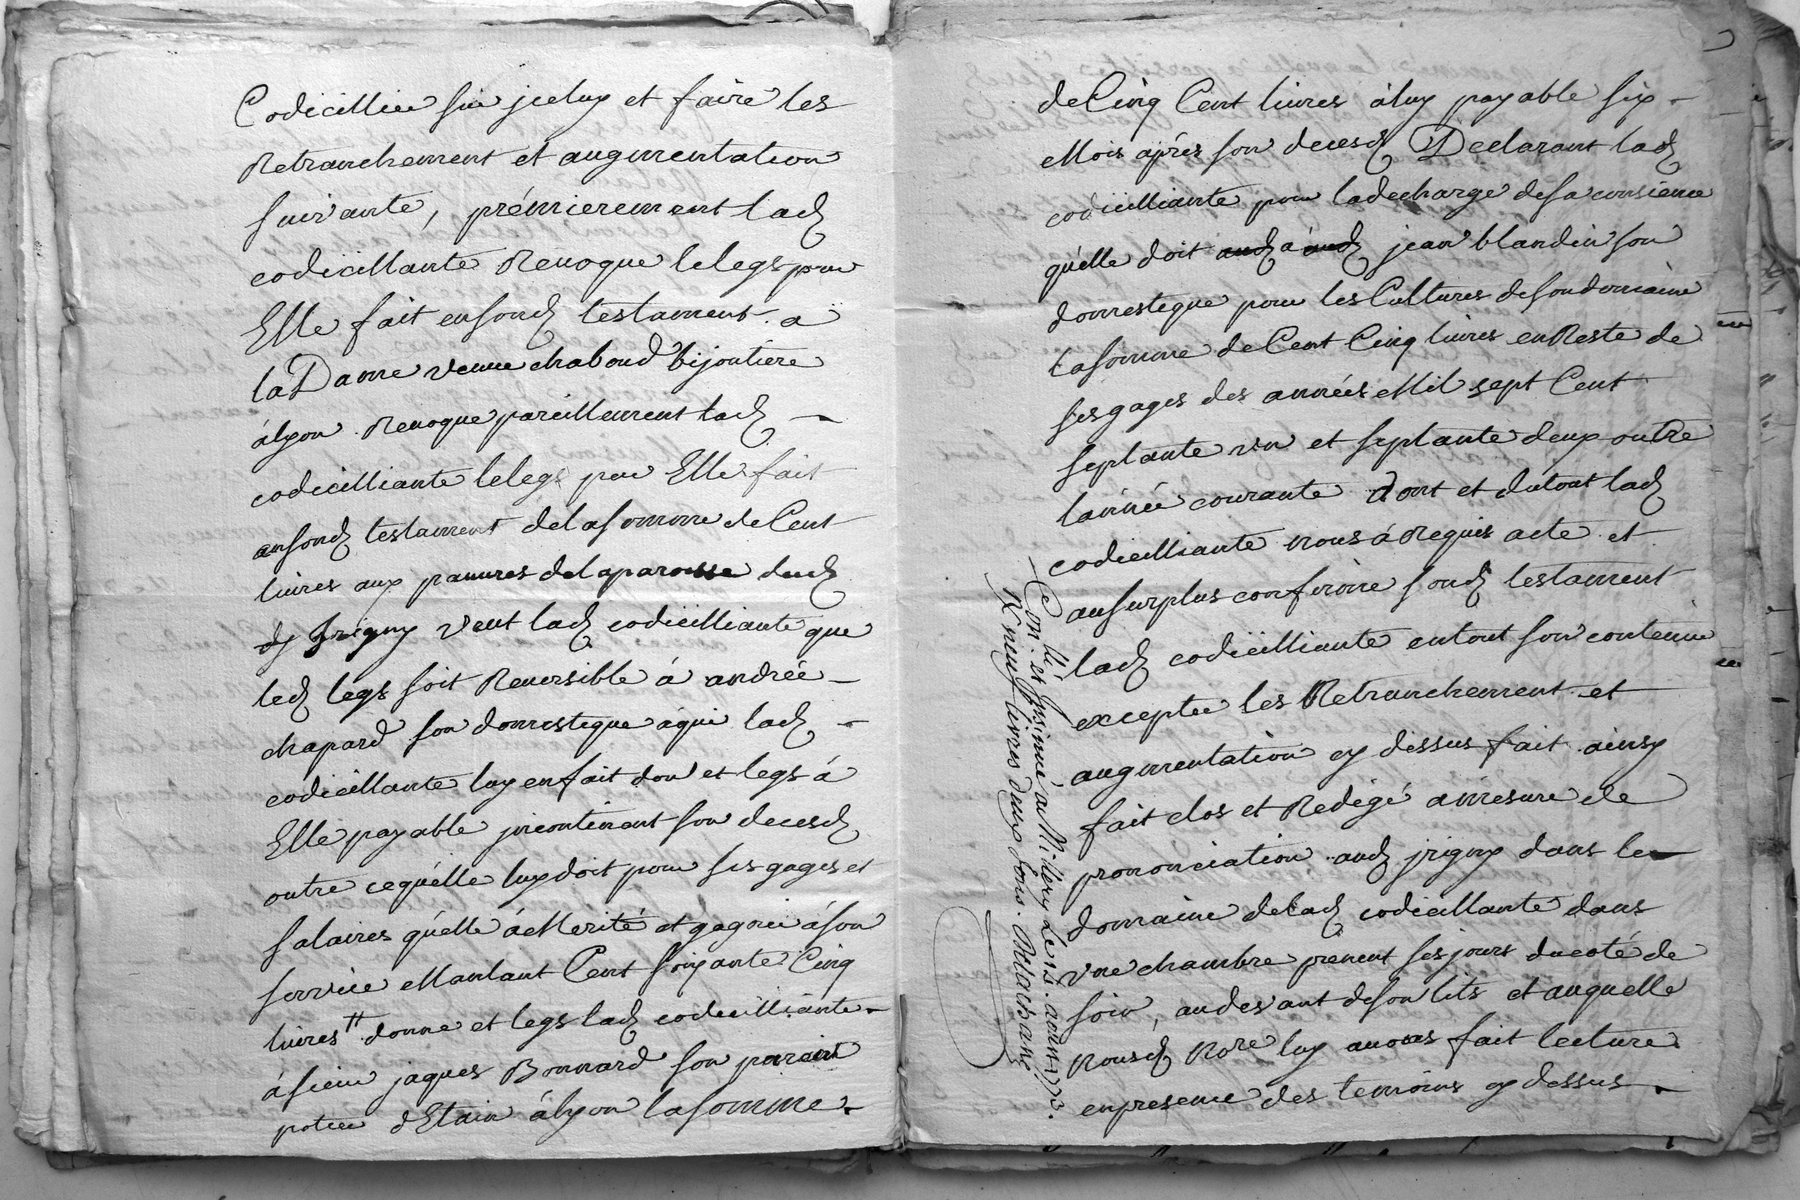 Codicillier sur jceluy et faire les
Retranchement et augmentation
suivante, prémierement lad
codicillante Revoque le legs par
Elle fait en sond testament a
la Dame veuve chaboud bijoutiere
á lyon Revoque pareillement lad
codicilliante le legs par Elle fait
en sond testament de la somme de Cent
livres aux pauvres de la paroisse dud
jrigny veut lad codicilliante que
led legs soit Reversible á andrée
chapard son domesteque á qui lad
codicillante luy en fait don et legs á
Elle payable jncontinant son decesd
outre ce quélle luy doit pour ses gages et
salaires quélle á Merité et gagnée á son
service Montant Cent soixante Cinq
livres tt donne et legs lad codicilliante
á sieur jaques Bonnard son parain
potier dEtain á lyon la somme
de Cinq Cent livres á luy payable six
Mois aprés son decesd Declarant lad
codicilliante pour la decharge de sa consience
quélle doit aud a jean blandin son
domesteque pour les Cultures de son domaine
la somme de Cent Cinq livres en Reste de
ses gages des années Mil sept Cent
septante un et septante deux outre
lannée courante Dont et du tout lad
codicilliante nous á Requis acte et
au surplus confirme sond testament
lad codicilliante en tout son contenu
exceptée les Retranchement et
augmentation cy dessus fait ainsy
fait clos et Redigé á mesure de
prononciation aud jrigny dans le
domaine de lad codicillante dans
vne chambre prenent ses jours du coté de
soir, au devant de son lits et auquelle
nousd Nore luy avons fait lecture
en presence des temoins cy dessus
Con. lé et Jnsinué a Millery le 13. aoust 1773.
R neuf livres deux sous.